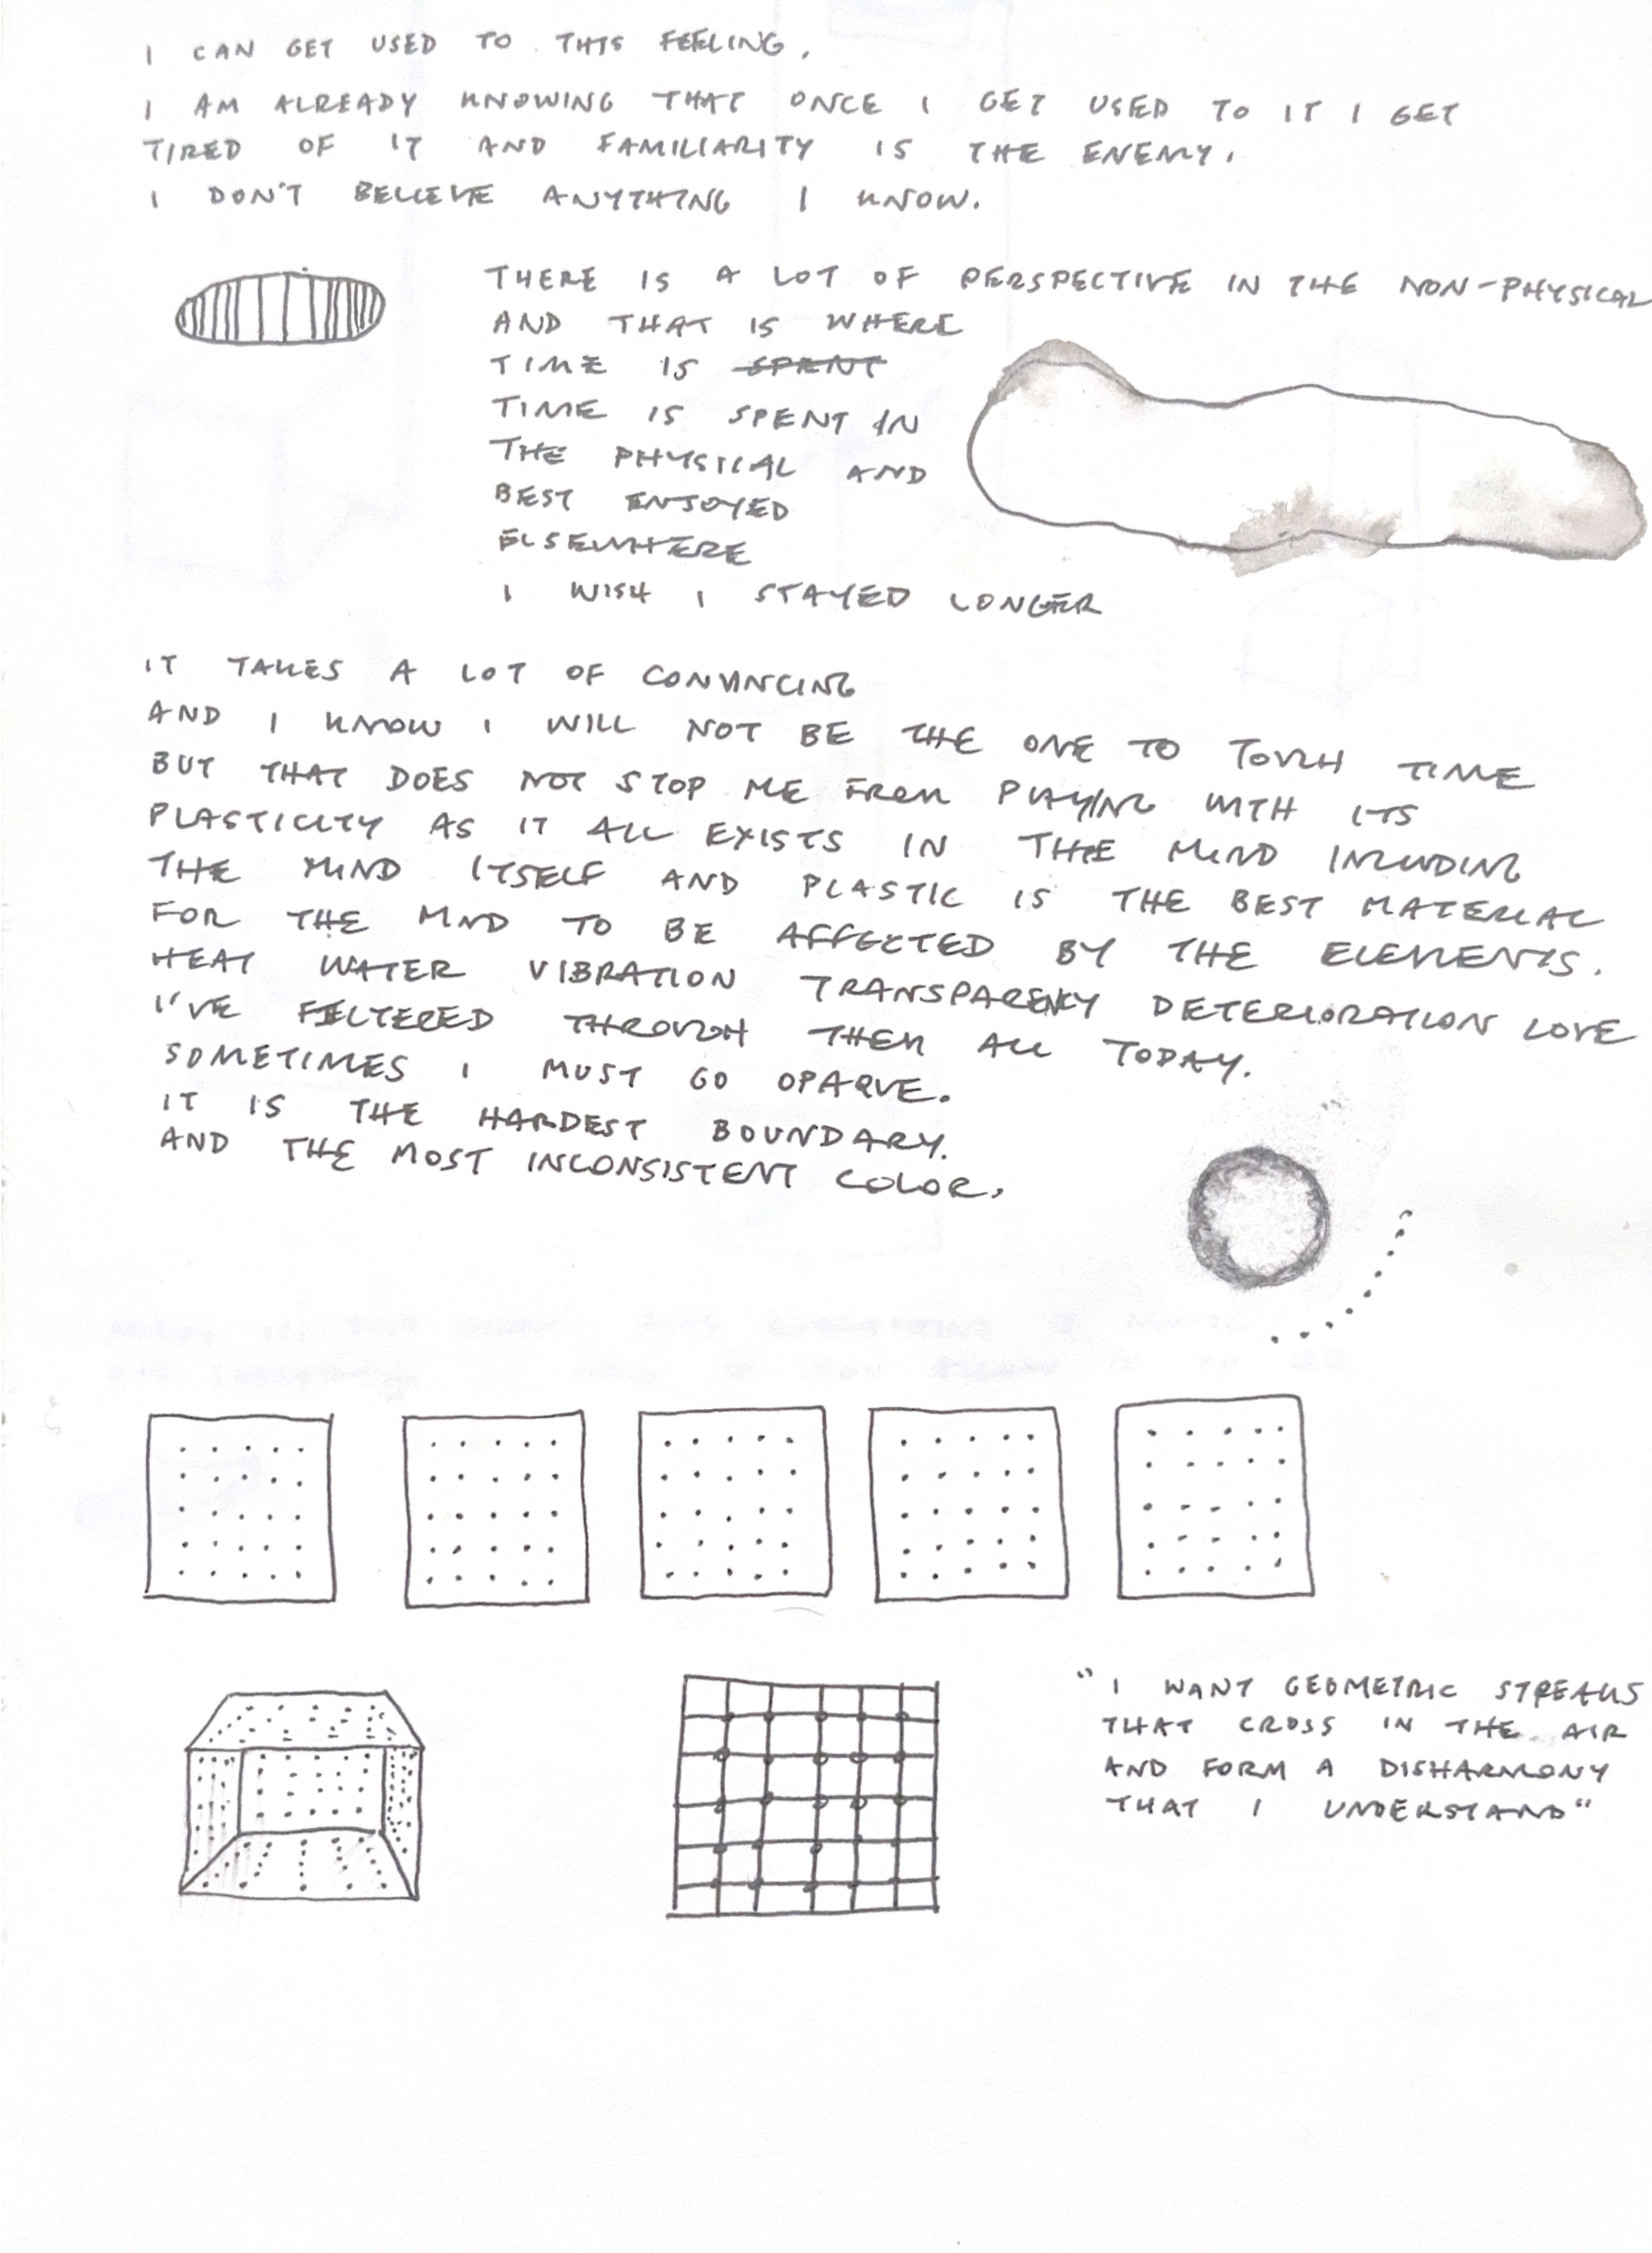 I CAN GET USED TO THIS FEELING.
I AM ALREADY KNOWING THAT ONCE I GET USED TO IT I GET
TIRED OF IT AND FAMILIARITY IS THE ENEMY.
I DON'T BELIEVE ANYTHING I KNOW.
THERE IS A LOT OF PERSPECTIVE IN THE NON-PHYSICAL
AND THAT IS WHERE
TIME IS SPENT
TIME IS SPENT IN
THE PHYSICAL AND
BEST ENJOYED
ELSEWHERE
I WISH I STAYED LONGER
IT TAKES A LOT OF CONVINCING
AND I KNOW I WILL NOT BE THE ONE TO TOUCH TIME
BUT THAT DOES NOT STOP ME FROM PLAYING WITH ITS
PLASTICITY AS IT ALL EXISTS IN THE MIND INCLUDING
THE MIND ITSELF AND PLASTIC IS THE BEST MATERIAL
FOR THE MIND TO BE AFFECTED BY THE ELEMENTS.
HEAT WATER VIBRATION TRANSPARENCY DETERIORATION LOVE
I'VE FILTERED THROUGH THEM ALL TODAY.
SOMETIMES I MUST GO OPAQUE.
IT IS THE HARDEST BOUNDARY.
AND THE MOST INCONSISTENT COLOR.
"I WANT GEOMETRIC STREAKS
THAT CROSS IN THE AIR
AND FORM A DISHARMONY
THAT I UNDERSTAND"